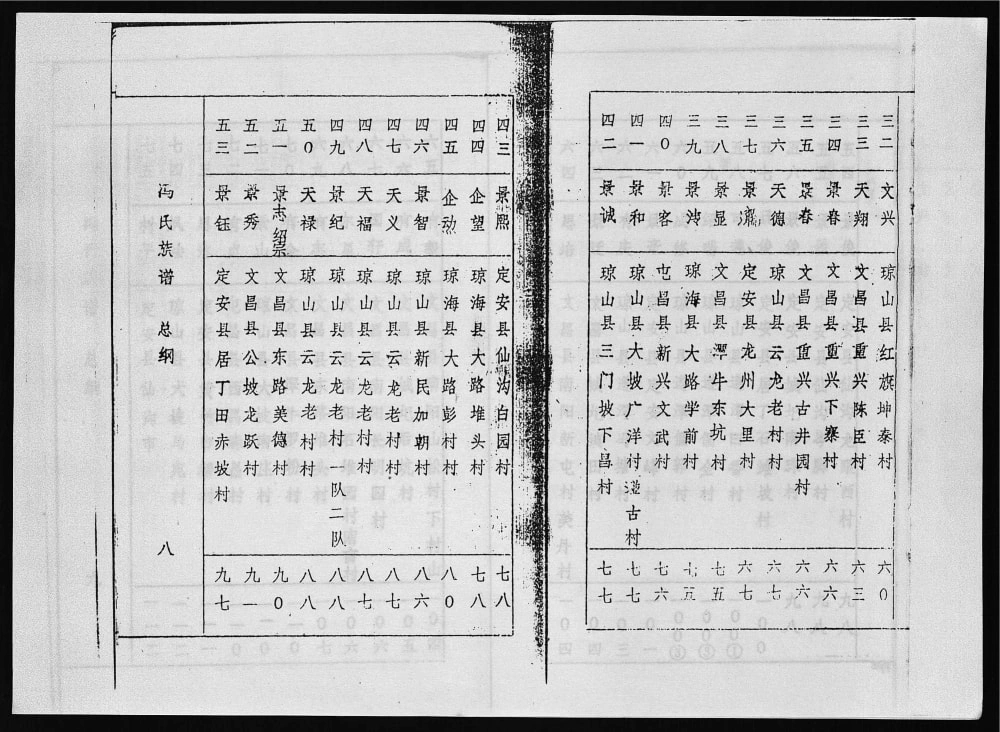 三二 文兴 琼山县红旗坤泰村 六0
三三 天翔 文昌县重兴陈臣村 六三
三四 景春 文昌县重兴下寨村 六六
三五 景春 文昌县重兴古井园村 六六
三六 天德 琼山县云龙老村村 六六
三七 景瀛 定安县龙州大里村 六七
三八 景显 文昌县潭牛东坑村 七五
三九 景鸿 琼海县大路学前村 七五
四0 景客 屯昌县新兴文武村 七六
四一 景和 琼山县大坡广洋村 村 七七
四二 景诚 琼山县三门坡下昌村 七七
四三 景熙 定安县仙沟白园村 七八
四四 企望 琼海县大路堆头村 七八
四五 企动 琼海县大路彭村村 八0
四六 景智 琼山县新民加朝村 八六
四七 天文 琼山县云龙老村村 八七
四八 天福 琼山县云龙老村村 八七
四九 景纪 琼山县云龙老村村一队二队 八八
五0 天禄 琼山县云龙老村村 八八
五一 景志绍宗 文昌县东路美德村 九0
五二 景秀 文昌县公坡龙跃村 九一
五三 景钰 定安县居丁田赤坡村 九七
冯氏族谱 总纲 八